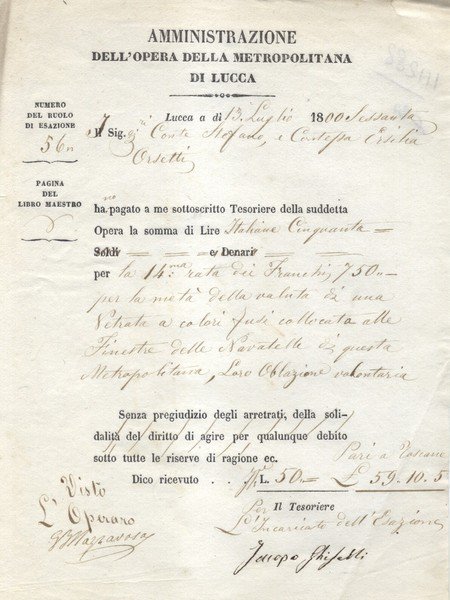 AMMINISTRAZIONE
DELL'OPERA DELLA METROPOLITANA
DI LUCCA
NUMERO
DEL RUOLO
DI ESAZIONE
56
PAGINA
DEL
LIBRO MAESTRO
Lucca a dì 13. Luglio 1800 Sessanta
Il Sig. Conte Stefano, e Contessa Ersilia
Orsetti
ha.no pagato a me sottoscritto Tesoriere della suddetta
Opera la somma di Lire Italiane Cinquanta =
Soldi = = e Denari =
per la 14.ma rata dei Franchi 750..=
per la metà della valuta di una
Vetrata a colori fusi collocata alle
Finestre delle Navatelle di questa
Metropolitana, Loro Oblazione volontaria
Senza pregiudizio degli arretrati, della soli-
dalità del diritto di agire per qualunque debito
sotto tutte le riserve di ragione ec.
Pari a Toscane
Dico ricevuto . . . L. 50..= £ 59.10.5
Visto
L'Operaro
Per Il Tesoriere
L'Incaricato dell'Esazione
Jacopo